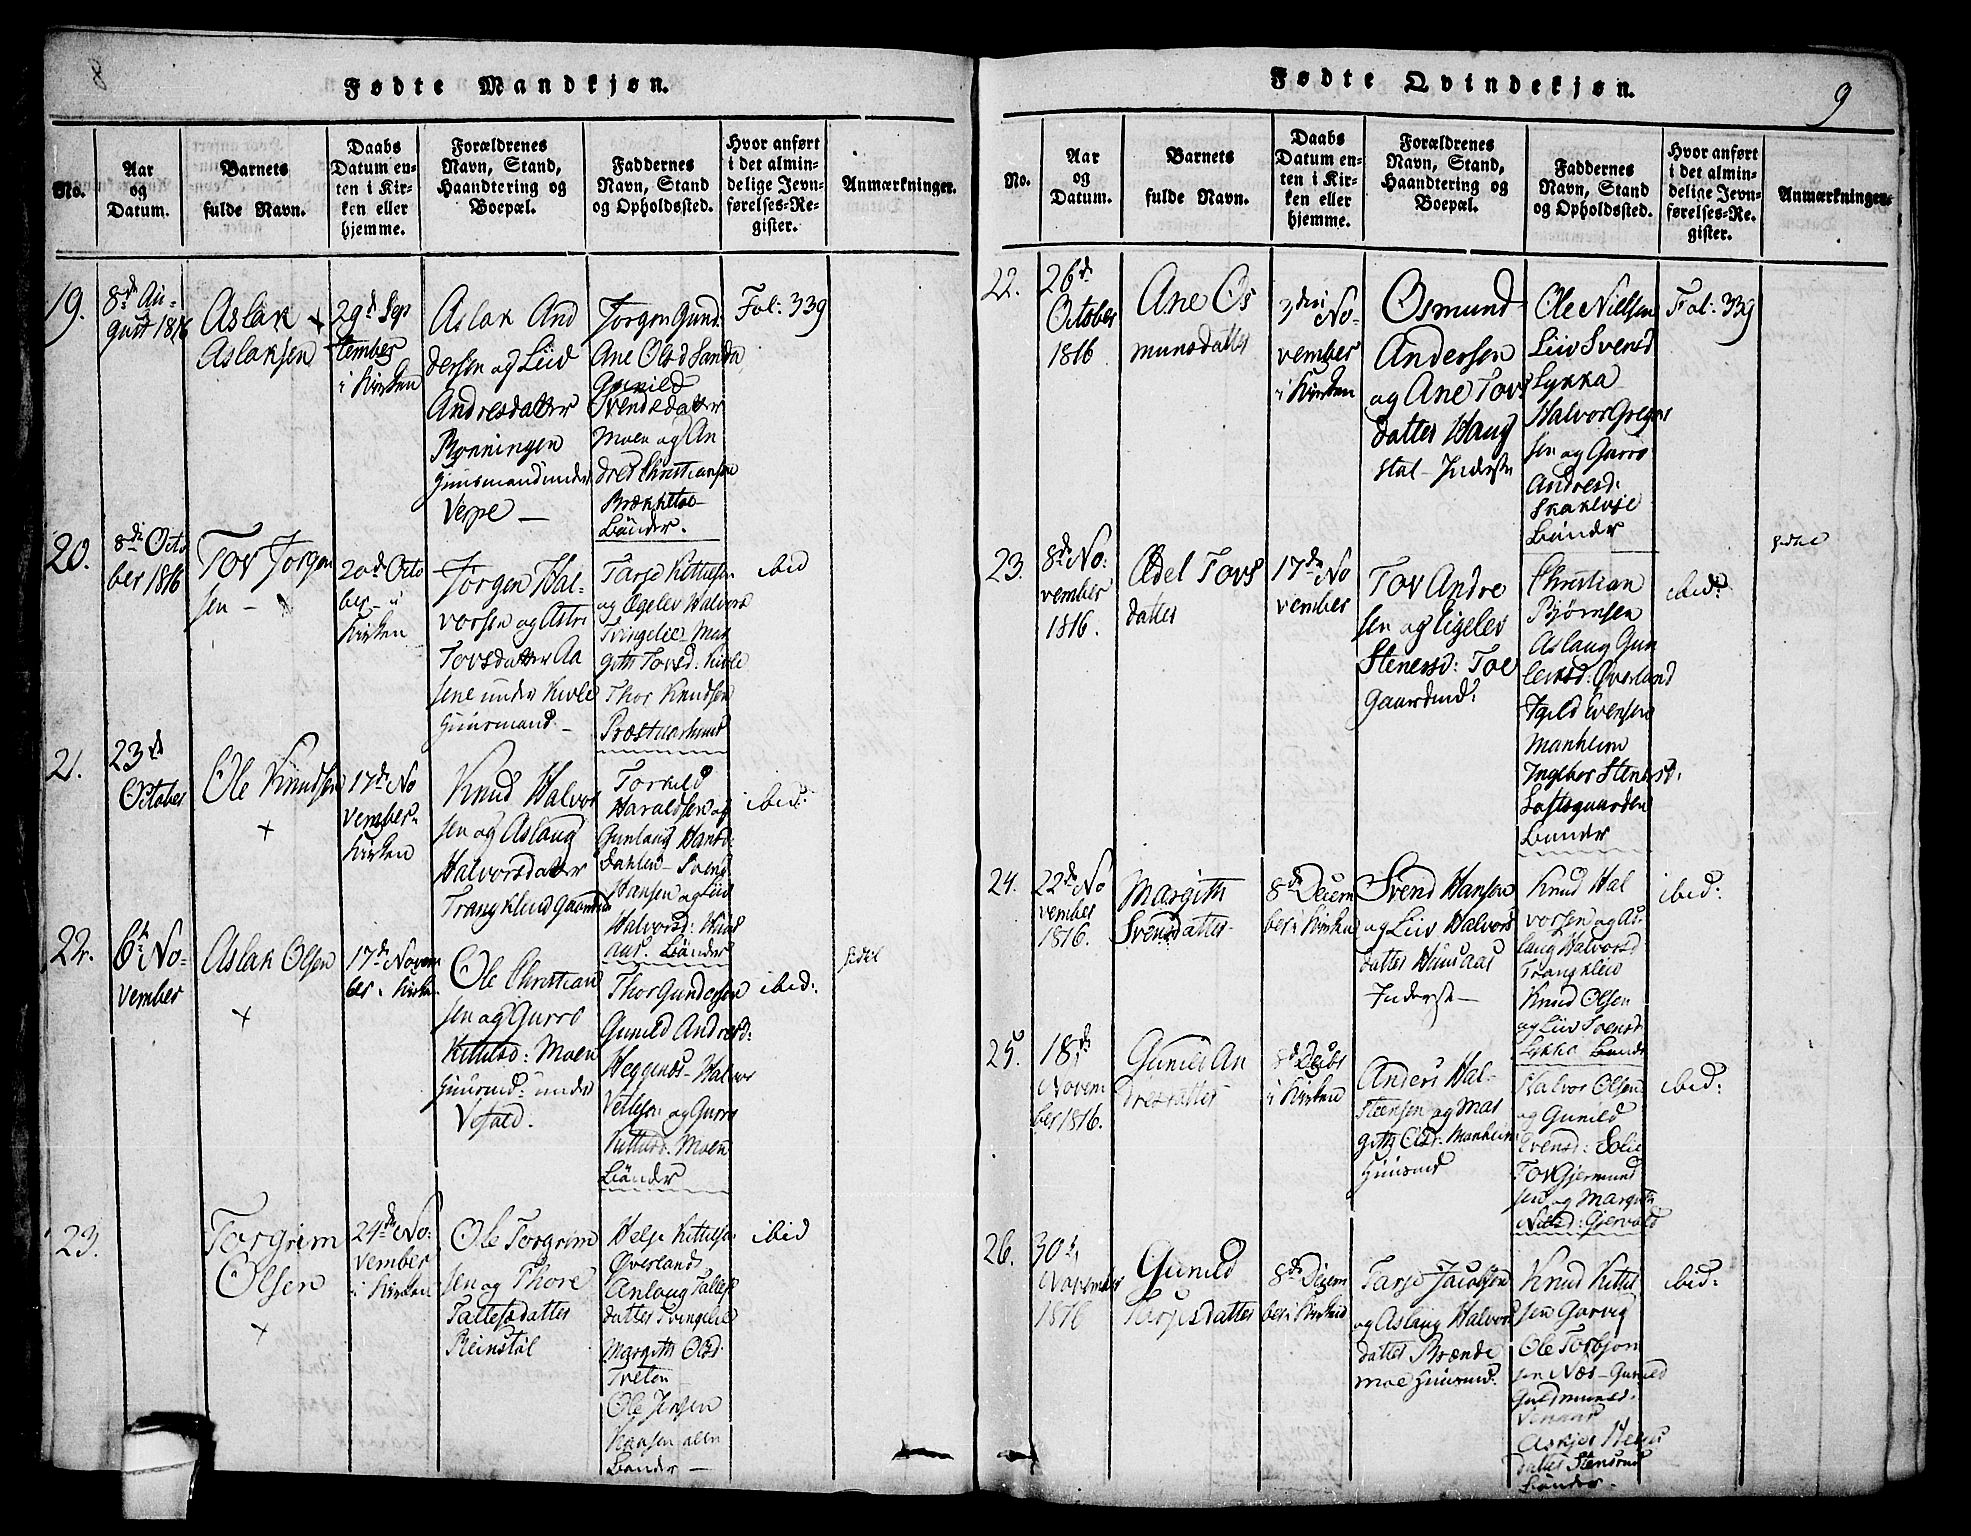 8
Fødte Mandkjøn.
No.
Aar
og
Datum.
Barnets
fulde Navn.
Daabs
Datum en-
ten i Kir-
ken eller
hjemme.
Forældrenes
Navn, Stand,
Haandtering og
Boepæl.
Faddernes
Navn, Stand
og Opholdssted.
Hvor anført
i det almin-
delige Jevn-
førelses-Re-
gister.
Anmærkninger.
19.
8de Au-
gust 1816
Aslak +
Aslaksen
29de Sep
tember
i Kirken
Aslak And
dersen og Liiv
Andresdatter
Rønningen
Huusmand under
Verpe —
Jørgen Gund
Ane Olsd Sanda
Gunild
Svendsdatter
Moen og An
dres Christiansen
Bønder.
Fol: 339
20.
8de Octo
ber 1816
Tov Jørgen
sen —
20de Octo
ber i
Kirken
Jørgen Hal-
vorsen og Astri
Tovsdatter Aa
sene under Kivle
Huusmand —
Tarje Kittilsen
og Egelev Halvorsd
Tvingelie Mar
gith Tovsd: Kivle
Thor Knudsen
ibid
21.
23de
October
Ole Knudsen
+
17de No
vember
Kirken
Knud Halvor
sen og Aslaug
Halvorsdatter
Trangkleiv Gaardm
Torkild
Haraldsen og
Gunlaug Hansd:
Dahlen Svend
Hansen og Liiv
Halvorsd: Huus
aas. Bønder
ibid:
22.
6te No-
vember
Aslak Olsen
+
17de Novem
ber i Kirken
Ole Christian
sen og Gurro
Kittilsd: Moen
Huusmd: under
Vefald.
Thor Gundersen
Gunild Andresd:
Heggenes Halvor
Vetlesen og Gurro
Kittilsd. Moen
Bønder
ibid:
sedel
23.
Torgrim
Olsen
+
24de No-
vember
i Kirken
Ole Torgrim
sen og Thore
Tallefsdatter
Reinstøl
Helje Kittilsen
Øverland
Anlaug Tallef
datter Tvingelie
Margith Olsd
Tveten
Ole Jensen
Hansen alle
Bønder —
ibid
9
Fødte Qvindekjøn.
No.
Aar
og
Datum.
Barnets
fulde Navn.
Daabs
Datum en-
ten i Kir-
ken eller
hjemme.
Forældrenes
Navn, Stand,
Haandtering og
Boepæl.
Faddernes
Navn, Stand
og Opholdssted.
Hvor anført
i det almin-
delige Jevn-
førelses-Re-
gister.
Anmærkninger.
22.
26de
October
1816
Ane Os
munsdatter
3die No-
vember
i Kirken
Osmund
Andersen
og Ane Tovs
datter Haug
stal Inderste
Ole Nielsen
Liiv Svensd
Lykka
Halvor Gregor
sen og Gurro
Andresd:
Bønder
Fol: 339
23.
8de No:
vember
1816.
Edel Tovs
datter
17de No
vember
Tov Andre
sen og Eigelev
Stenersd: Toe
Gaardmd:
Christian
Bjørnsen
Aslaug Gun
leiksd: Øverland
Evensen
Manheim
Ingebor Stenersd:
Loftsgaarden
Bønder
ibid:
sedel
24.
22de No
vember
1816.
Margith
Svensdatter
8de Decem
ber i Kirken
Svend Hansen
og Liiv Halvors
datter Huusaas
Inderste —
Knud Hal
vorsen og As
laug Halvorsd
Trangkleiv
Knud Olsen
og Liiv Svensd
Lykke Bønder
ibid:
25.
18de
Novem
ber 1816.
Gunild An
dresdatter
8de Decbr
i Kirken
Anders Hal-
steensen og Mar
gith Olsdr: Manheim
Huusmd
Halvor Olsen
og Gunild
Svensd: Solie
Tov Gjermund
sen og Margith
Nielsd: Gjervold
ibid:
26.
30te
November
1816
Gunild
Tarjesdatter
8de Decem
ber i Kirken
Tarje Jacobsen
og Aslaug Halvors
datter Brænde
moe Huusmd:
Knud Kittel
sen Garvig
Ole Torbjørn
sen Næs — Gunild
Guldmundsd.
Askjer
datter Stensrud
Bønder.
ibid: